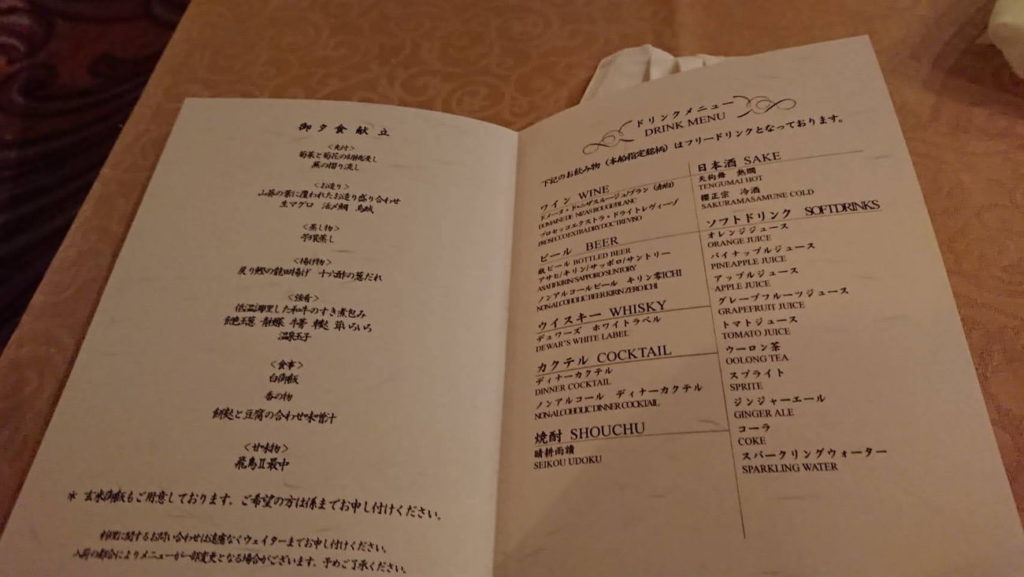 御夕食献立
<先付>
菊菜と菊花のお浸し
蕪の摺り流し
<お造り>
山葵の葉に覆われたお造り盛り合わせ
生マグロ 活〆鯛 烏賊
<蒸し物>
芋環蒸し
<揚げ物>
戻り鰹の竜田揚げ 十六酢の葱だれ
<強肴>
低温調理した和牛のすき煮包み
温泉玉子
<食事>
白御飯
香の物
餅麩と豆腐の合わせ味噌汁
<甘味物>
飛鳥Ⅱ最中
* 玄米御飯もご用意しております。ご希望の方は係までお申し付けください。
料理に関するお問い合わせは遠慮なくウェイターまでお申し付けください。
入荷の都合によりメニューが一部変更となる場合がございます。予めご了承ください。
ドリンクメニュー
DRINK MENU
下記のお飲み物(本船指定銘柄)はフリードリンクとなっております。
ワイン WINE
ドメーヌ・ド・ニザスルージュ/ブラン(赤/白)
DOMAINE DE NIZAS ROUGE/BLANC
プロセッコエクストラ・ドライトレヴィーゾ
PROSECCO EXTRA DRY DOC TREVISO
ビール BEER
瓶ビール BOTTLED BEER
アサヒ/キリン/サッポロ/サントリー
ASAHI/KIRIN/SAPPORO/SUNTORY
ノンアルコールビール キリン零ICHI
NON-ALCOHOLIC BEER KIRIN ZERO ICHI
ウイスキー WHISKY
デュワーズ ホワイトラベル
DEWAR'S WHITE LABEL
カクテル COCKTAIL
ディナーカクテル
DINNER COCKTAIL
ノンアルコール ディナーカクテル
NON-ALCOHOLIC DINNER COCKTAIL
焼酎 SHOUCHU
晴耕雨讀
SEIKOU UDOKU
日本酒 SAKE
天狗舞 熱燗
TENGUMAI HOT
櫻正宗 冷酒
SAKURAMASAMUNE COLD
ソフトドリンク SOFT DRINKS
オレンジジュース
ORANGE JUICE
パイナップルジュース
PINEAPPLE JUICE
アップルジュース
APPLE JUICE
グレープフルーツジュース
GRAPEFRUIT JUICE
トマトジュース
TOMATO JUICE
ウーロン茶
OOLONG TEA
スプライト
SPRITE
ジンジャーエール
GINGER ALE
コーラ
COKE
スパークリングウォーター
SPARKLING WATER